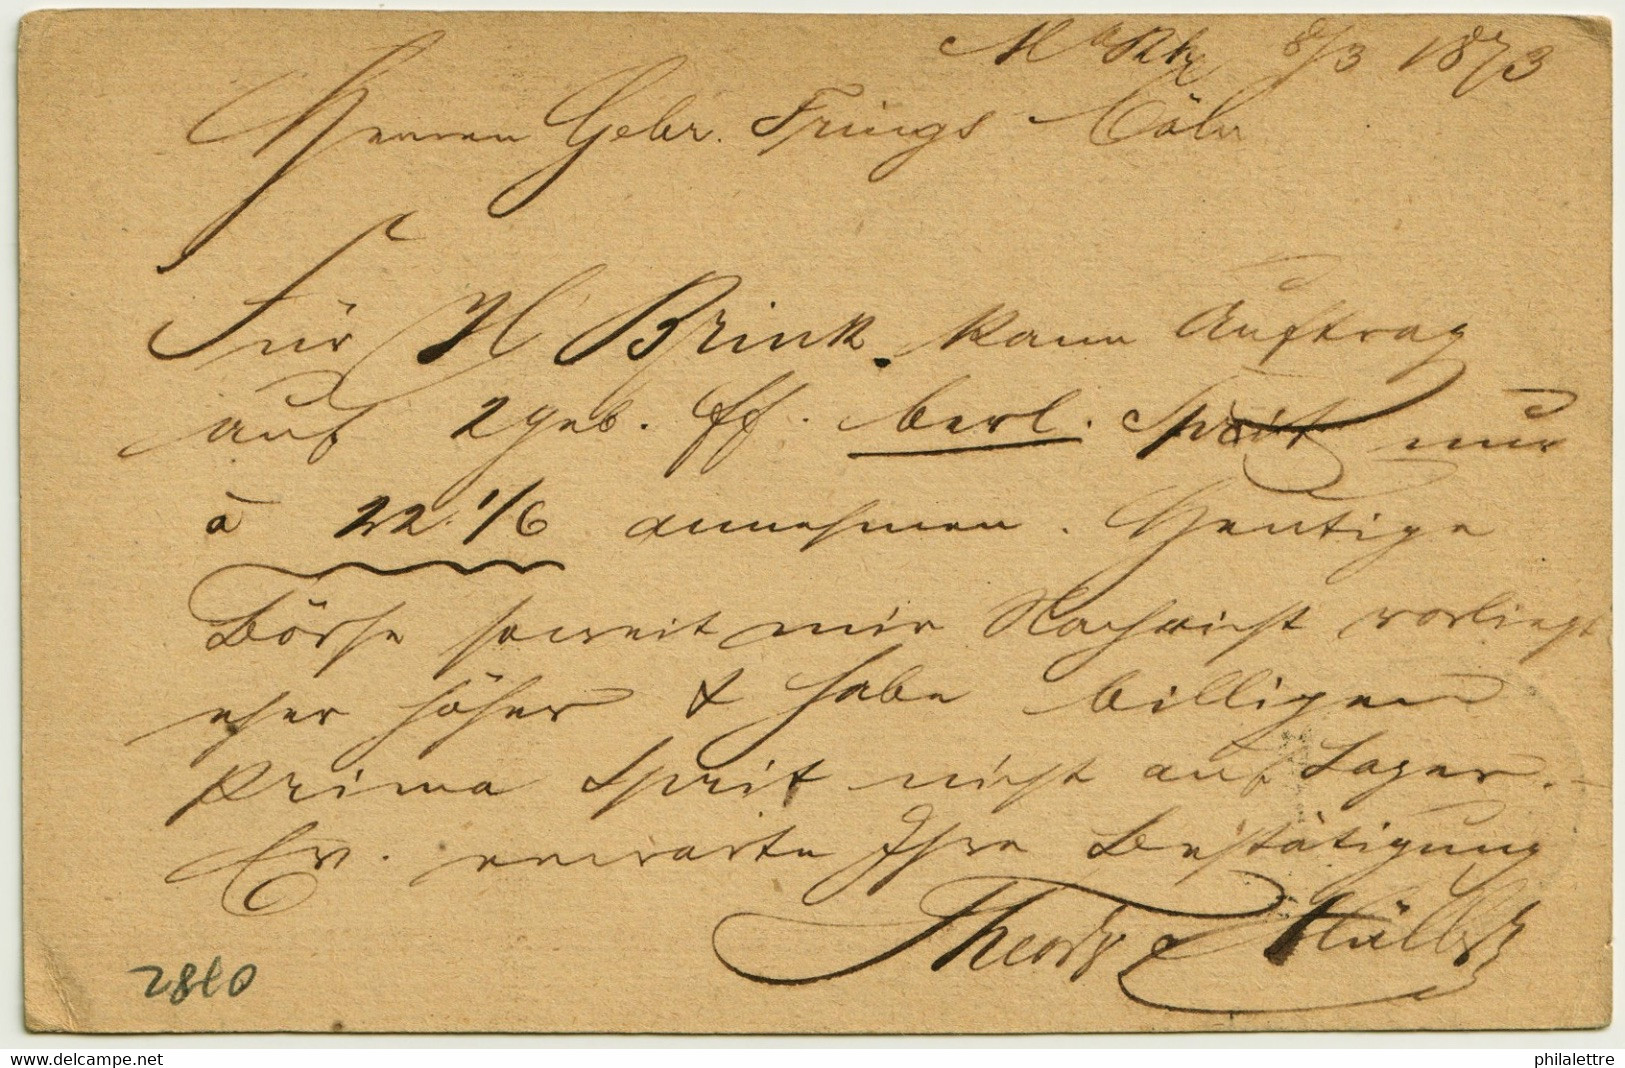 8/3 1873
Herren Gebr. Frings Cöln
Für H Brink. kann Auftrag
auf 2 geb. ff. berl. Sprit nur
à 22 1/6 annehmen. Heutige
Börse soweit mir Nachricht vorliegt
eher höher & habe billigen
prima Sprit nicht auf Lager. -
Ew. erwarte Ihre Bestätigung
Theodor
2810
www.delcampe.net
philalettre